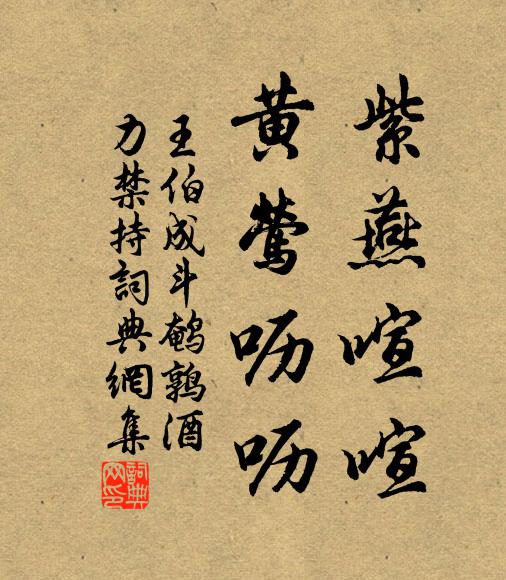 紫燕喧喧
黄莺呖呖
王伯成斗鹌鹑酒
力禁持詞典網集
詞典网印